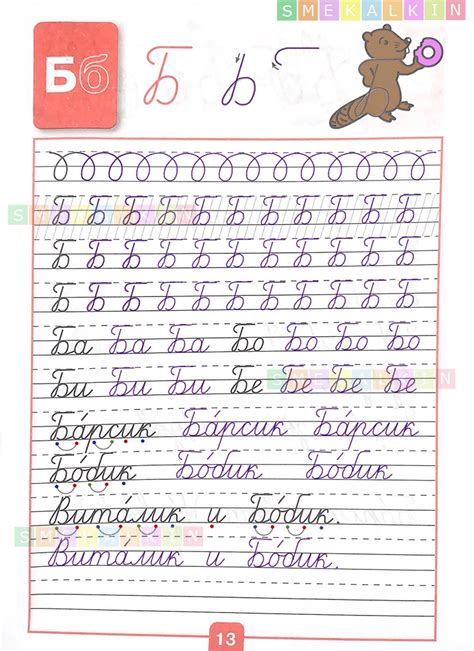 SMEKALKIN
Бб Б
Б Б Б Б Б Б Б Б Б Б Б
SMEKALKIN
Б Б Б Б Б Б Б Б Б Б Б
Б Б Б Б Б Б Б Б Б Б Б
Ба Ба Ба Бо Бо Бо
Би Би Би Бе Бе Бе Бе
SMEKALKIN
Ба́рсик Ба́рсик Ба́рсик
Бо́бик Бо́бик Бо́бик
Вита́лик и Бо́бик.
SMEKALKIN
Вита́лик и Бо́бик.
13